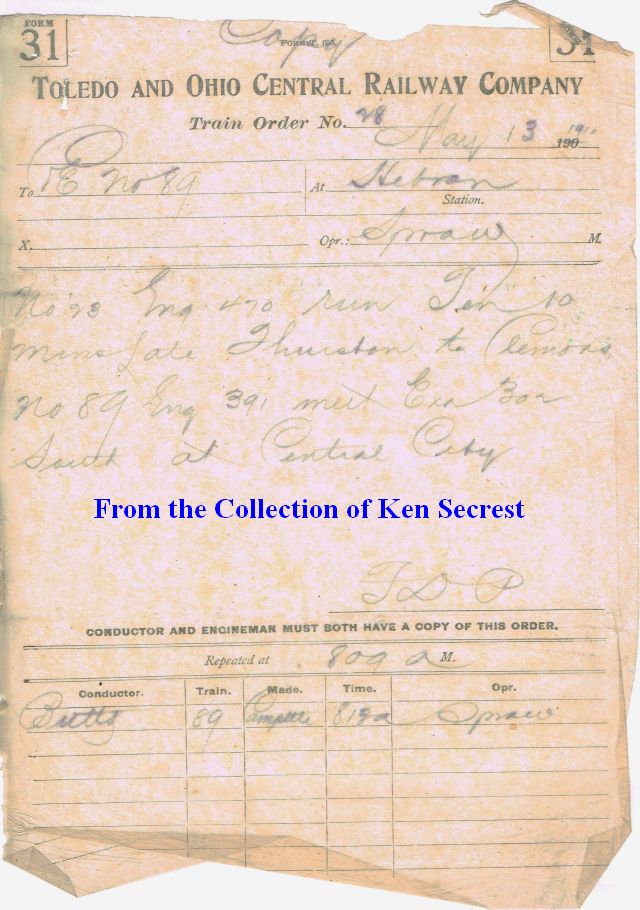 FORM
31
Copy
FORM T.
31
TOLEDO AND OHIO CENTRAL RAILWAY COMPANY
Train Order No. 28 May 13 1910
190
To C & E No 89 At Hebron
Station.
X. Opr.: Spraw M.
No 23 Eng 470 run Ten 10
mins late Thurston to Clemons
No 89 Eng 391 meet Exa 302
South at Central City
From the Collection of Ken Secrest
T D P
CONDUCTOR AND ENGINEMAN MUST BOTH HAVE A COPY OF THIS ORDER.
Repeated at 809 a M.
Conductor. Train. Made. Time. Opr.
Butts 89 Complete 812a Spraw